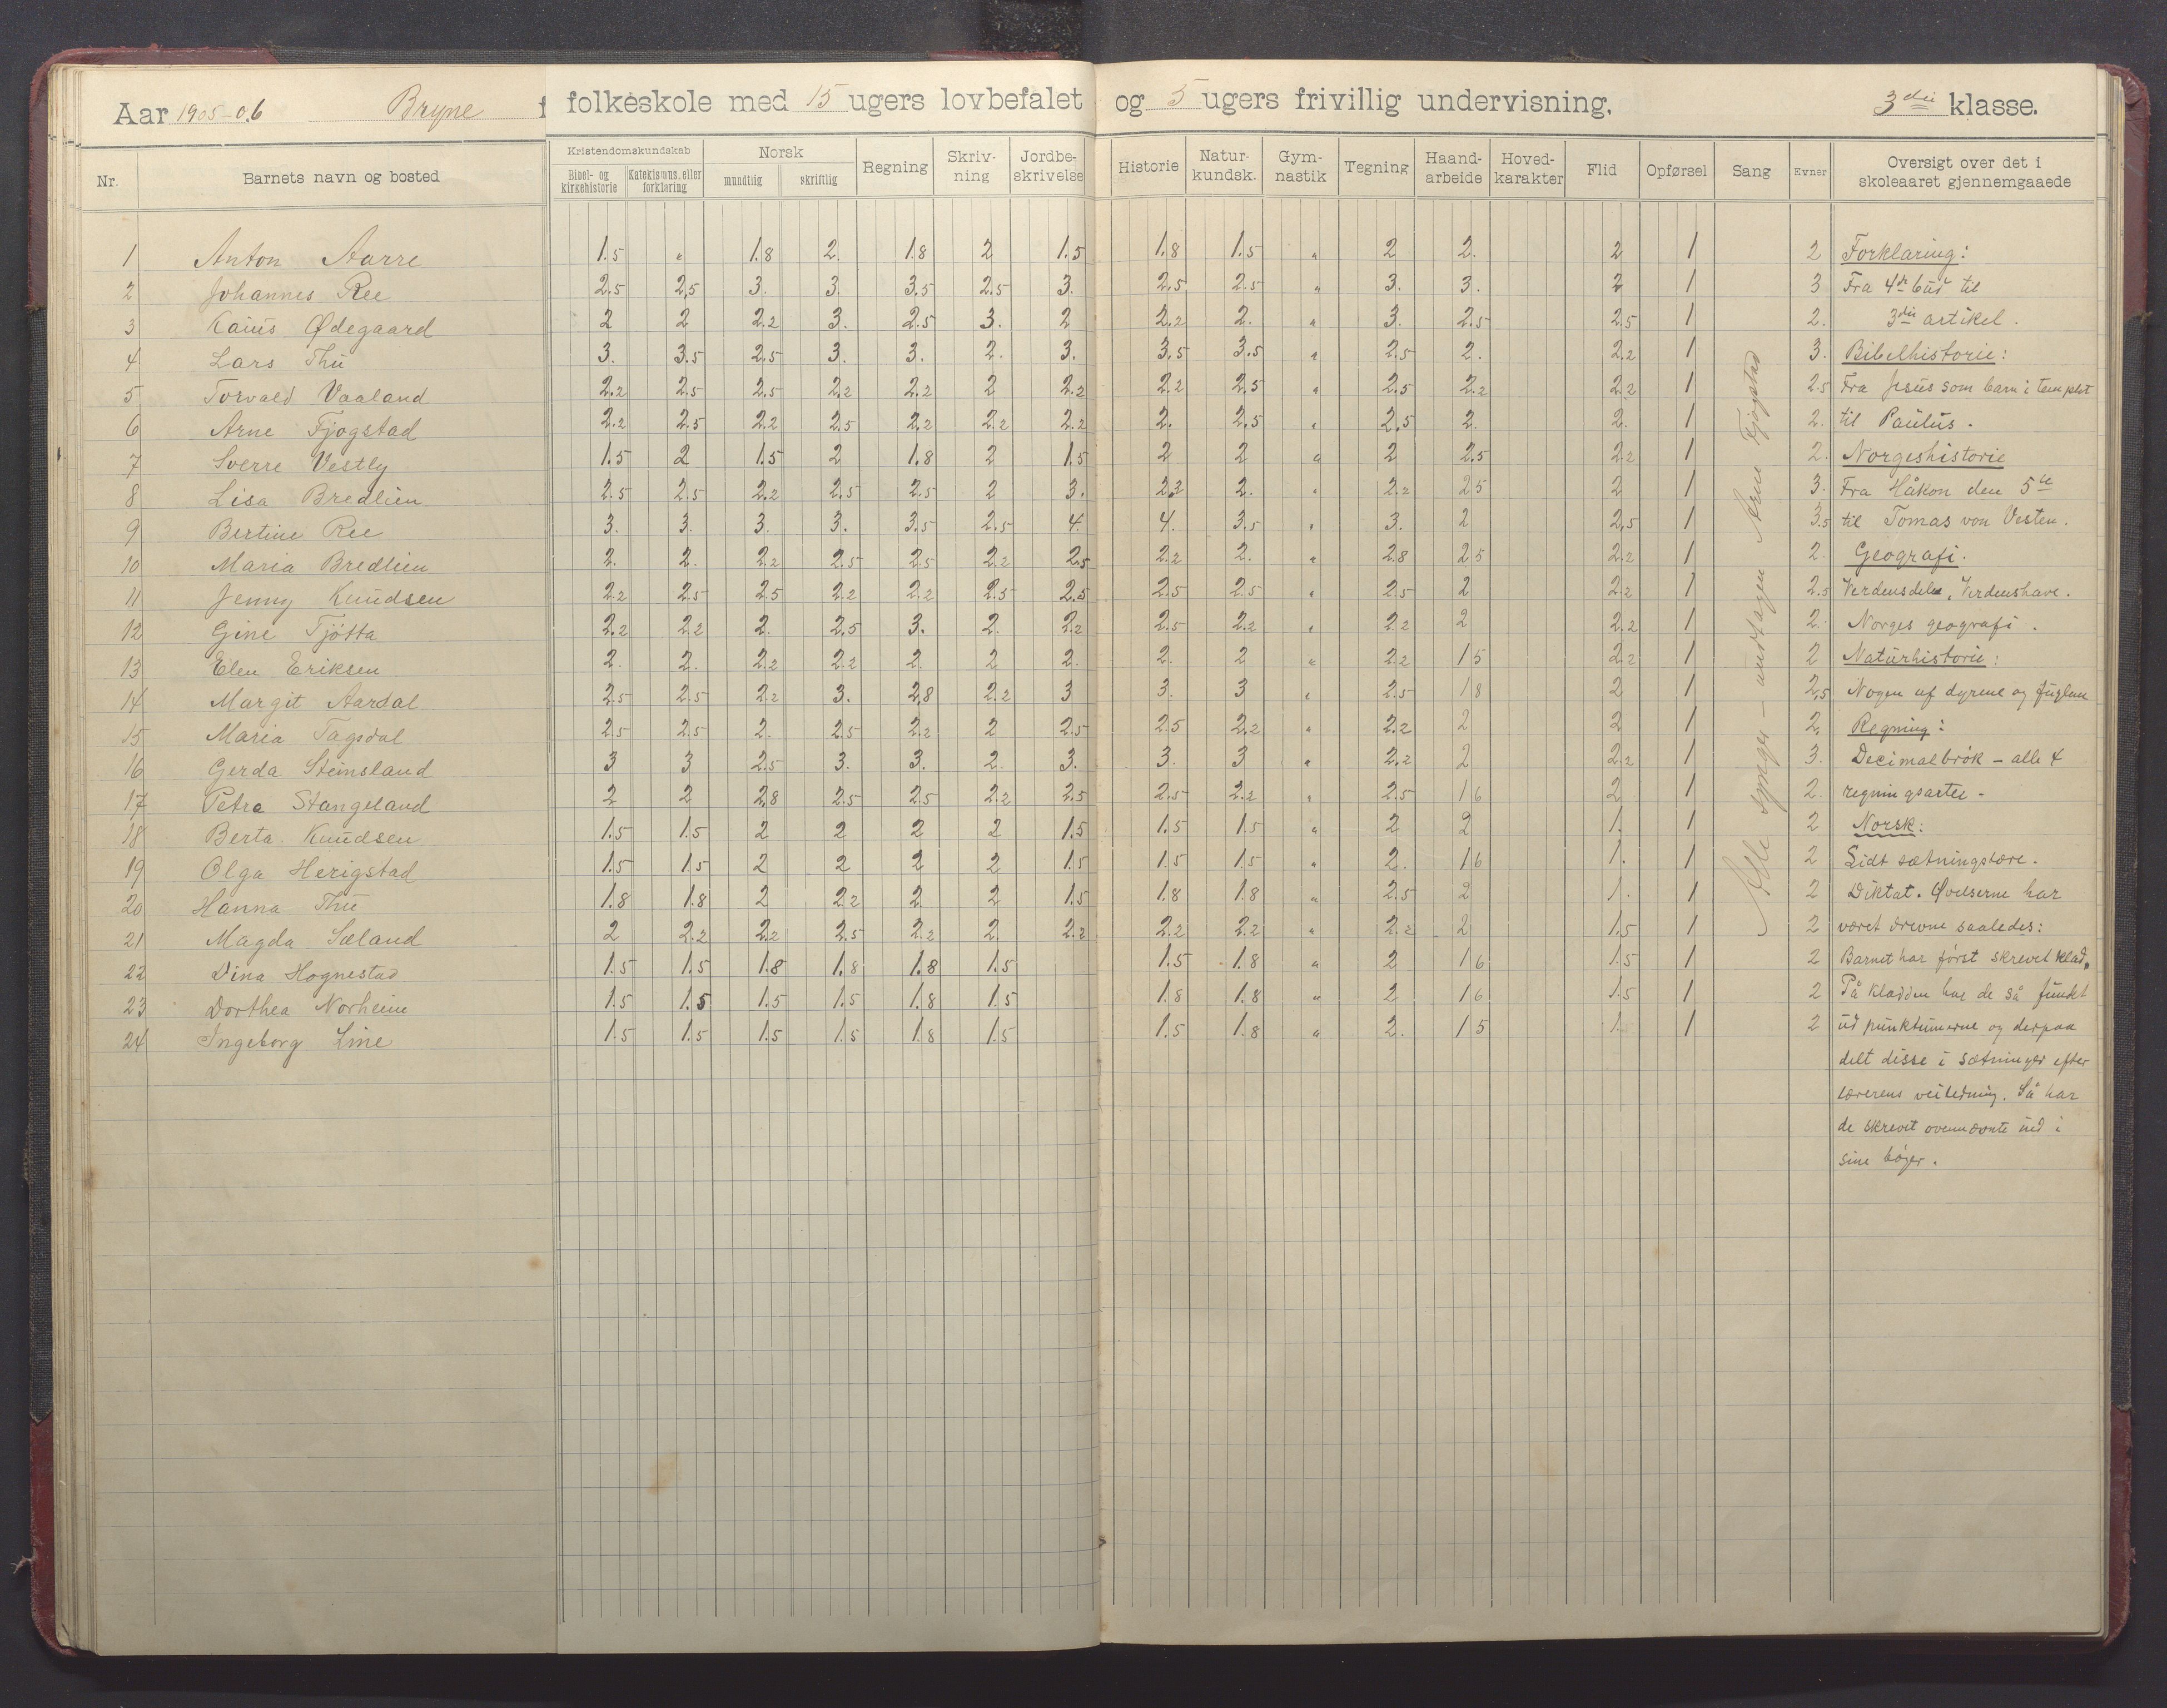 Aar 1905-06 Bryne folkeskole med 15 ugers lovbefalet og 5 ugers frivillig undervisning. 3die klasse.
Nr. Barnets navn og bosted Kristendomskundskab Bibel- og kirkehistorie Katekismus. eller forklaring Norsk mundtlig skriftlig Regning Skriv-ning Jordbe-skrivelse Historie Natur-kundsk. Gym-nastik Tegning Haand-arbeide Hoved-karakter Flid Opførsel Sang Evner Oversigt over det i skoleaaret gjennemgaaede
1 Anton Aarre 1.5 " 1.8 2. 1.8 2 1.5 1.8 1.5 " 2 2. 2 1 2 Forklaring:
2 Johannes Ree 2.5 2.5 3. 3. 3.5 2.5 3. 2.5 2.5 " 3. 3. 2 1 3 Fra 4de bud til
3 Kaius Ødegaard 2 2 2.2 3. 2.5 3. 2 2.2 2. " 3. 2.5 2.5 1 2. 3die artikel.
4 Lars Thu 3. 3.5 2.5 3. 3. 2. 3. 3.5 3.5 " 2.5 2. 2.2 1 3. Bibelhistorie:
5 Torvald Vaaland 2.2 2.5 2.5 2.2 2.2 2 2.2 2.2 2.5 " 2.5 2.2 2.2 1 2.5 Fra Jesus som barn i templet
6 Arne Fjogstad 2.2 2.5 2.2 2.5 2.2 2.2 2.2 2. 2.5 " 2.5 2. 2. 1 2. til Paulus.
7 Sverre Vestly 1.5 2 1.5 2 1.8 2 1.5 2 2 " 2 2.5 2.2 1 2. Norgeshistorie
8 Lisa Bredlien 2.5 2.5 2.2 2.5 2.5 2 3. 2.2 2. " 2.2 2 5 2 1 3. Fra Håkon den 5te
9 Bertine Ree 3. 3. 3. 3. 3.5 2.5 4 4. 3.5 " 3. 2 2.5 1 3.5 til Tomas von Vesten.
10 Maria Bredlien 2. 2. 2.2 2.5 2.5 2.2 2.5 2.2 2. " 2.8 2 5 2.2 1 2. Geografi.
11 Jenny Knudsen 2.2 2.5 2.5 2.2 2.2 2.5 2.5 2.5 2.5 " 2.5 2 2.2 1 2.5 Verdensdele, Verdenshave.
12 Gine Tjötta 2.2 2.2 2. 2.5 3. 2. 2.2 2.5 2.2 " 2.2 2 2.2 1 2. Norges geografi.
13 Elen Eriksen 2. 2. 2.2 2.2 2. 2 2. 2. 2 " 2.2 1 5 2.2 1 2 Naturhistorie:
14 Margit Aardal 2.5 2.5 2.2 3. 2.8 2.2 3 3. 3 " 2.5 1 8 2 1 2.5 Nogen af dyrene og fuglene
15 Maria Tagsdal 2.5 2.5 2. 2.5 2.2 2 2.5 2.5 2.2 " 2.2 2 2 1 2. Regning:
16 Gerda Steinsland 3 3 2.5 3. 3. 2. 3. 3. 3 " 2.2 2 2.2 1 3. Decimalbrök - alle 4
17 Petra Stangeland 2 2 2.8 2.5 2.5 2.2 2.5 2.5 2.2 " 2.5 1 6 2 1 2. regningsarter -
18 Berta Knudsen 1.5 1.5 2 2 2 2 1.5 1.5 1.5 " 2 2 1. 1 2 Norsk:
19 Olga Herigstad 1.5 1.5 2 2 2 2 1.5 1.5 1.5 " 2. 1 6 1. 1 2 Lidt sætningslære.
20 Hanna Thu 1.8 1.8 2 2.2 2. 2 1.5 1.8 1.8 " 2.5 2 1. 1 2 Diktat. Øvelserne har
21 Magda Sæland 2 2.2 2.2 2.5 2.2 2. 2.2 2.2 2.2 " 2.2 2 1.5 1 2 været drevne saaledes:
22 Dina Hognestad 1.5 1.5 1.8 1.8 1.8 1.5 1.5 1.8 " 2 1 6 1.5 1 2 Barnet har först skrevet klad.
23 Dorthea Norheim 1.5 1.5 1.5 1.5 1.8 1.5 1.8 1.8 " 2 1 6 1.5 1 2 På kladden har de så fundet
24 Ingeborg Line 1.5 1.5 1.5 1.5 1.8 1.5 1.5 1.8 " 2. 1 5 1. 1 2 ud punktumerne og derpaa
delt disse i sætninger efter
lærerens veiledning. Så har
de skrevet ovennævnte ind i
sine böger.
Alle synger - undtagen Arne Fjogstad